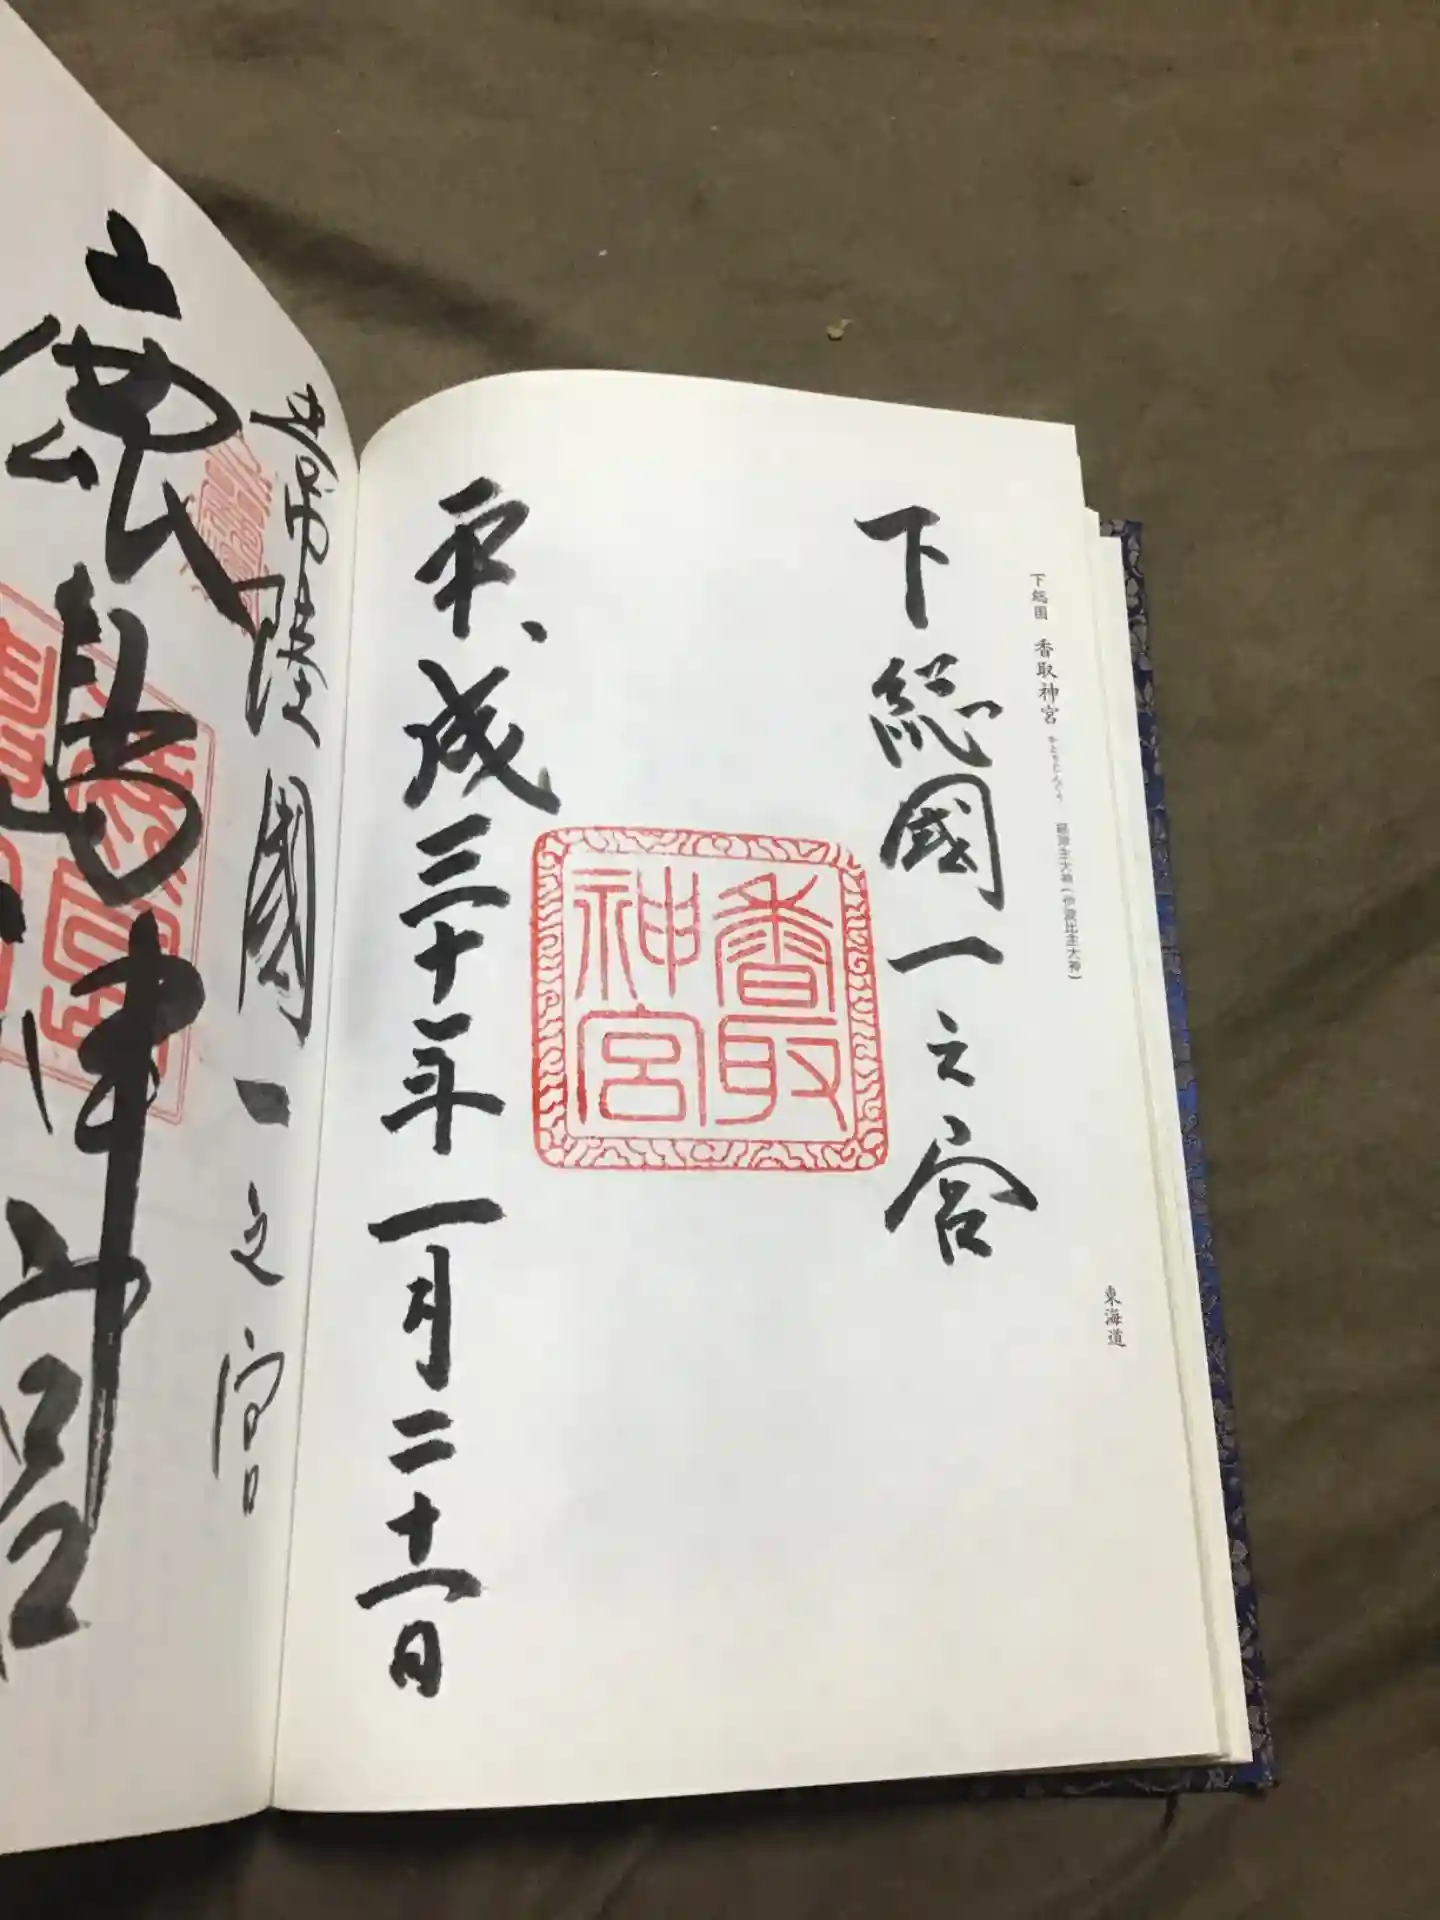 下総国 香取神宮 かとりじんぐう 経津主大神(伊波比主大神)
東海道
下総國一之宮
香取
神宮
平成三十年一月二十一日
常陸國一之宮
鹿島神宮